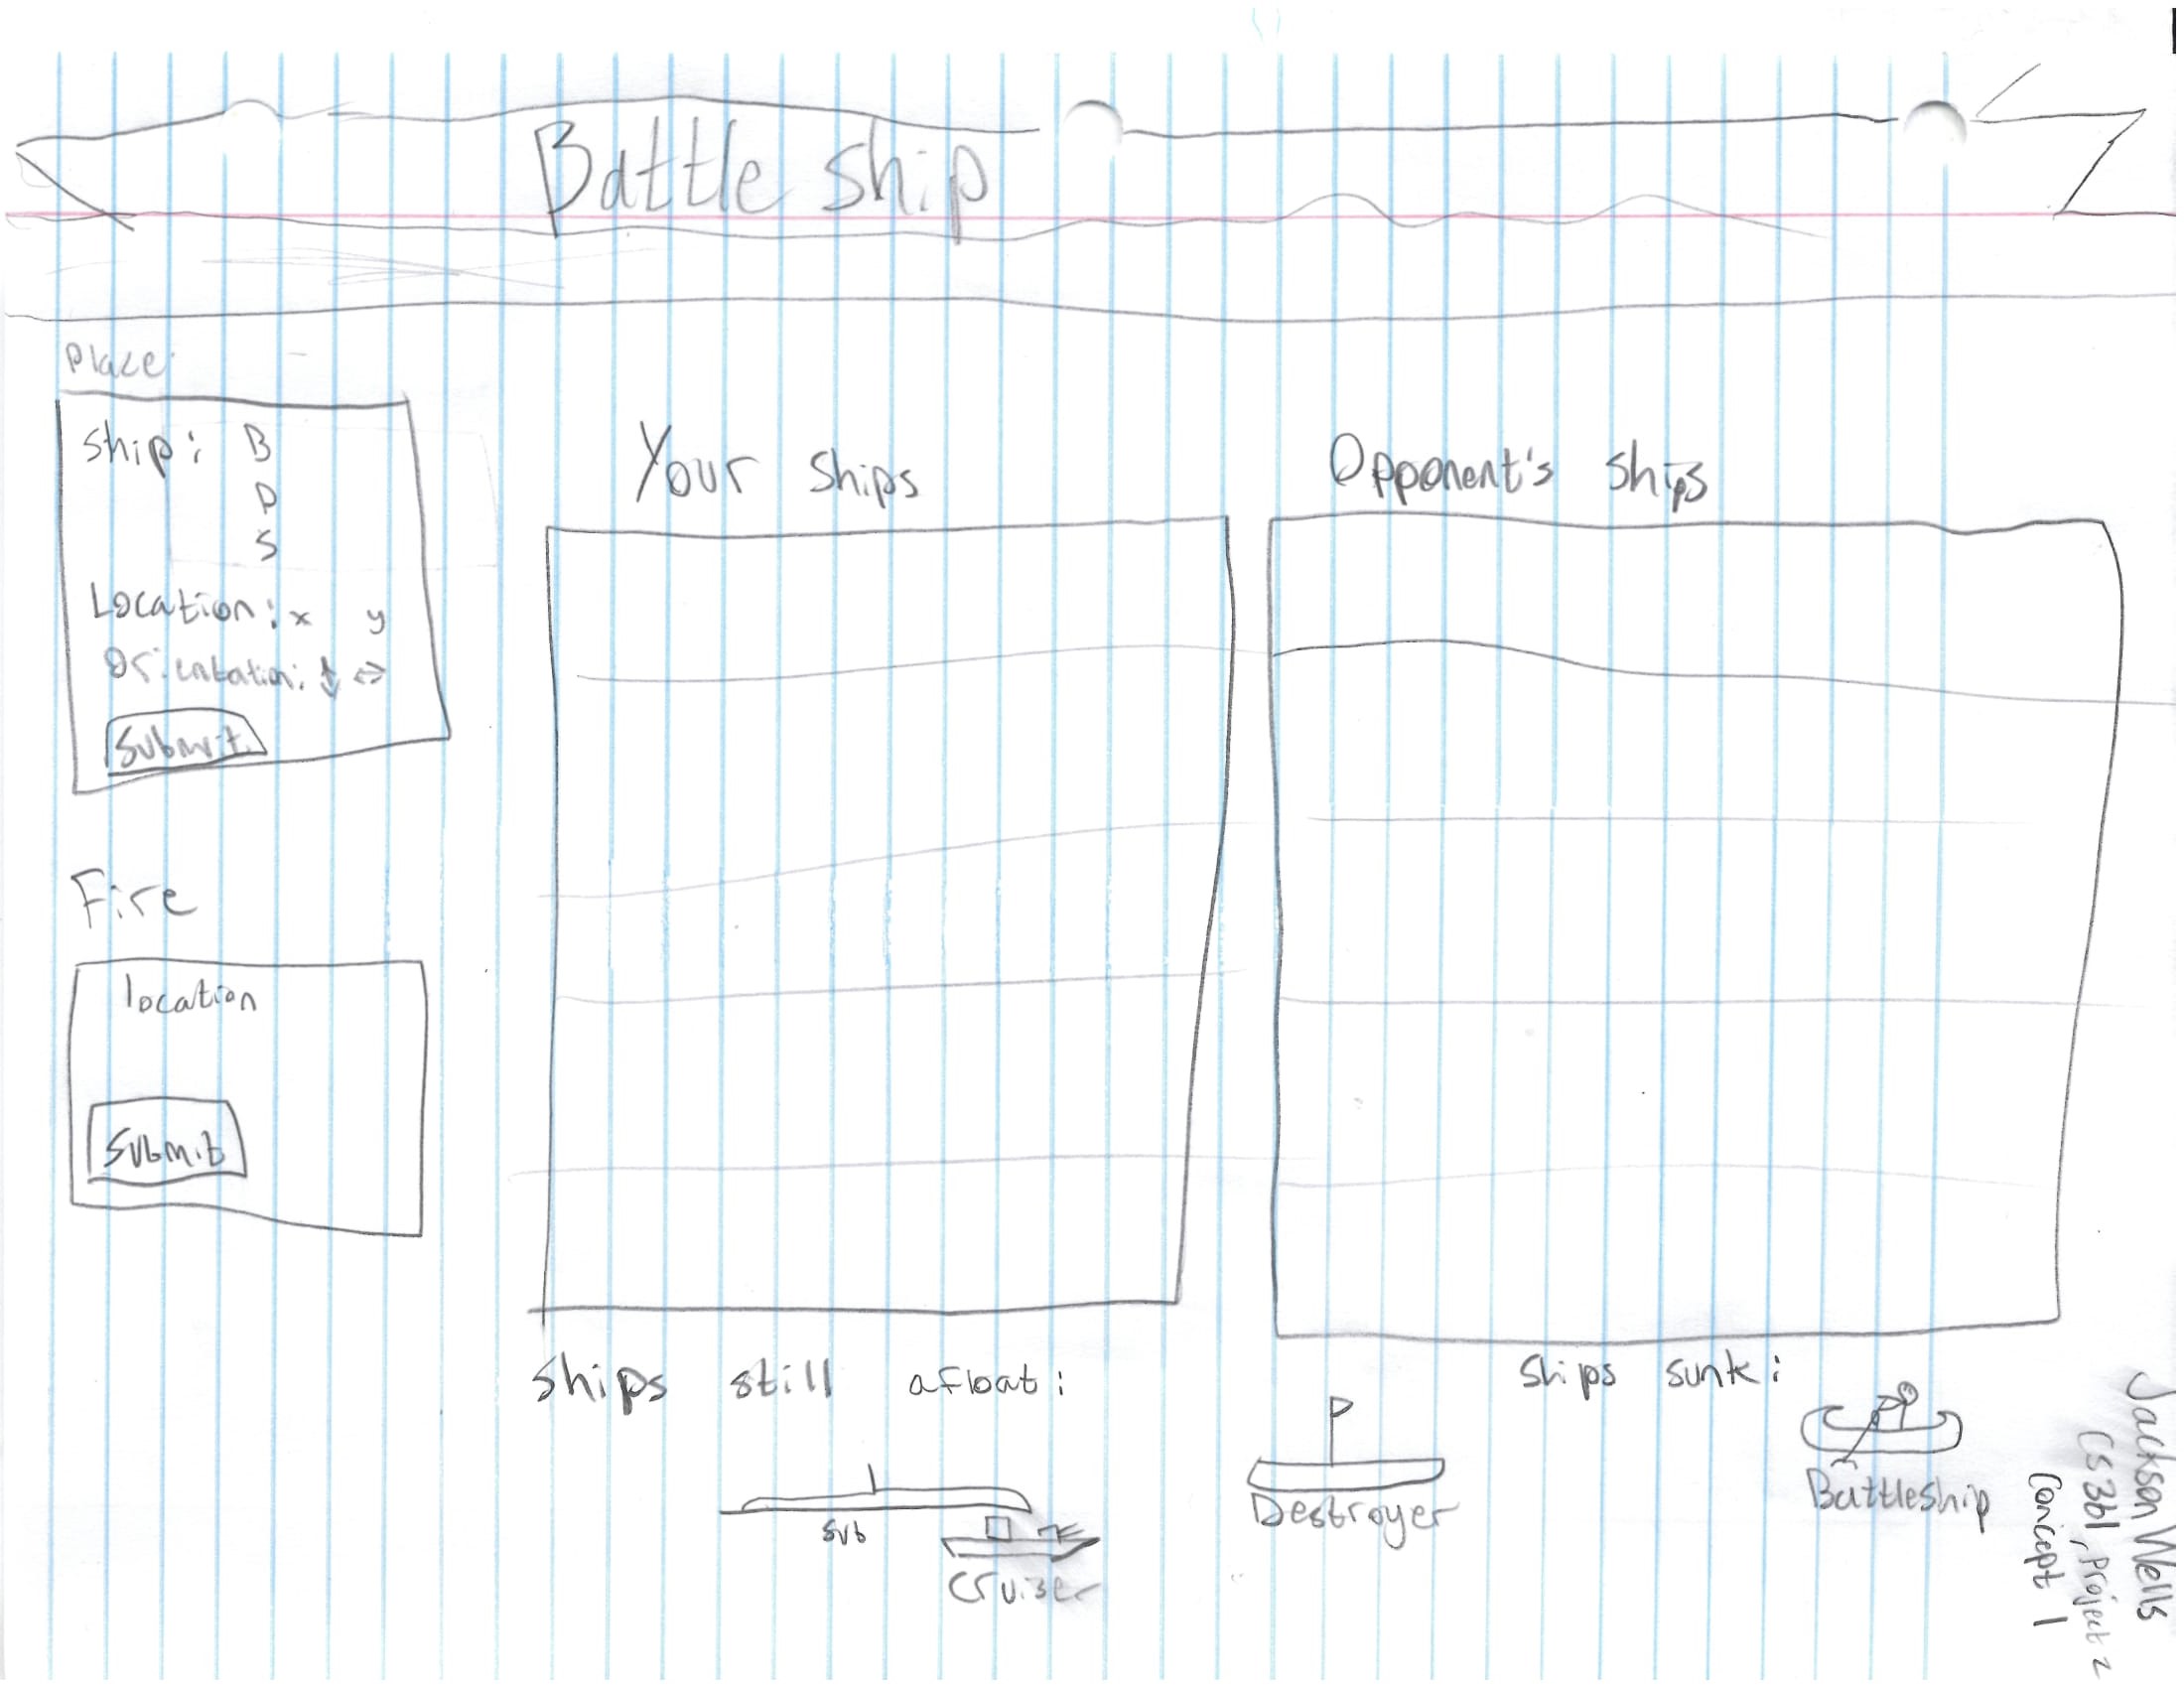 Battle ship
Place
Ship: B
D
S
Location: x y
Orientation:
Submit
Fire
location
Submit
Your Ships
Opponent's Ships
Ships still afloat:
Ships sunk:
Sub
Cruiser
Destroyer
Battleship
Jackson Wells
CS361, Project 2
Concept 1